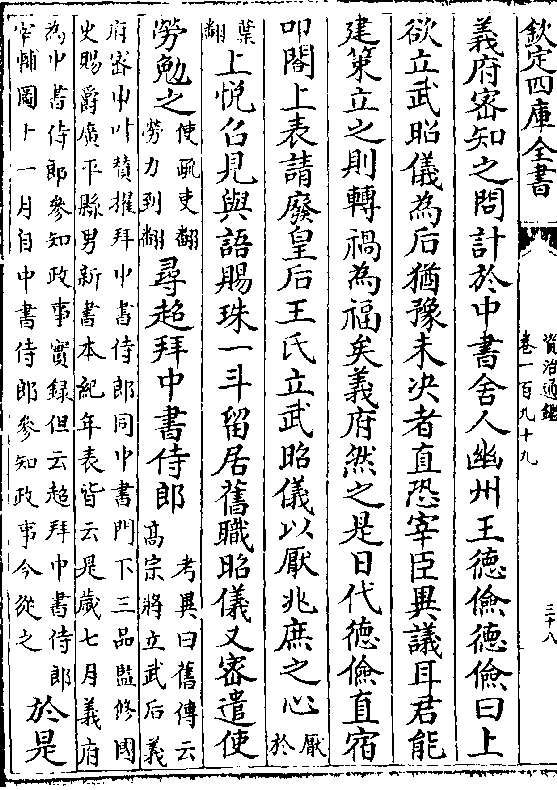 欽定四庫全書
資治通鑑
卷一百九十九
三十八
義府密知之問計於中書舍人幽州王徳儉徳儉曰上
欲立武昭儀為后猶豫未決者直恐宰臣異議耳君能
建策立之則轉禍為福矣義府然之是日代徳儉直宿
叩閤上表請廢皇后王氏立武昭儀以厭兆庶之心厭於
葉翻上悦召見與語賜珠一斗留居舊職昭儀又密遣使
勞勉之使疏吏翻勞力到翻尋超拜中書侍郎考異曰舊傳云高宗將立武后義
府密申叶賛擢拜中書侍郎同中書門下三品監修國
史賜爵廣平縣男新書本紀年表皆云是歳七月義府
為中書侍郎參知政事實録但云超拜中書侍郎
宰輔圖十一月自中書侍郎參知政事今從之於是